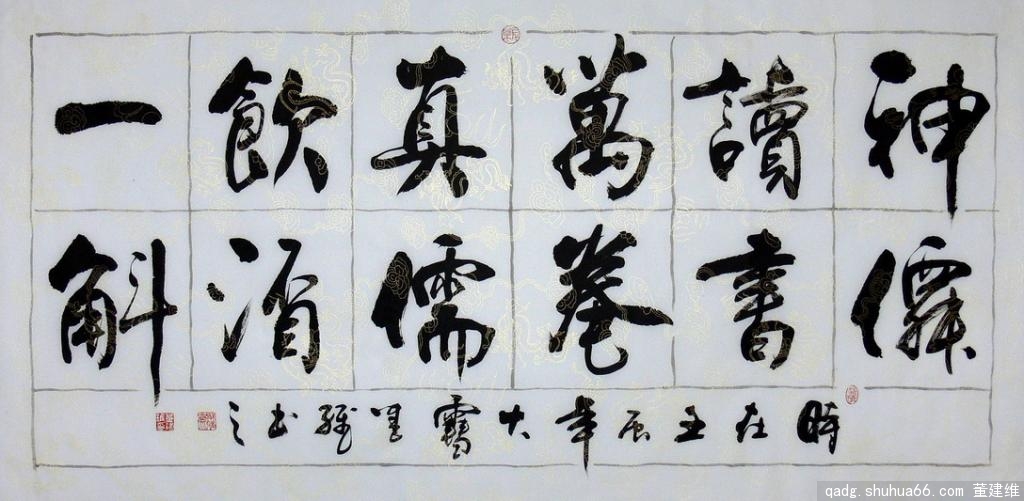 神僊
讀書
萬卷
真儒
飲酒
一斛
時在壬辰年大雪維书之
qadg.shuhua66.com 董建维